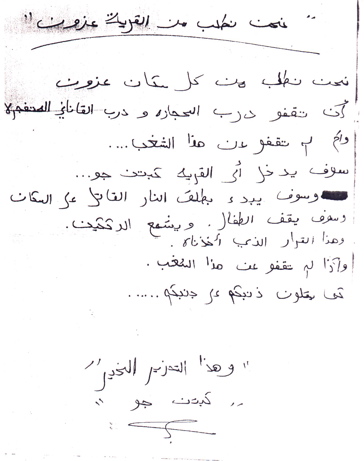 " نحن نطلب من القرية عزون "
نحن نطلب من كل سكان عزون
أن تقفو درب الحجاره و درب القناني المتفجره
وإن لم تقفو عن هذا الشغب....
سوف يدخل أل القريه كبتن جو...
وسوف يبدء بطلق النار القاتل عل السكان
وسوف يقف الطفال. ويشمع الدككين.
وهذا القرار الذي أخذناه.
وإذا لم تقفو عن هذا الشغب.
ذنبكم عل جنبكم......
" وهذا التحزير الخير "
" كبتن جو "